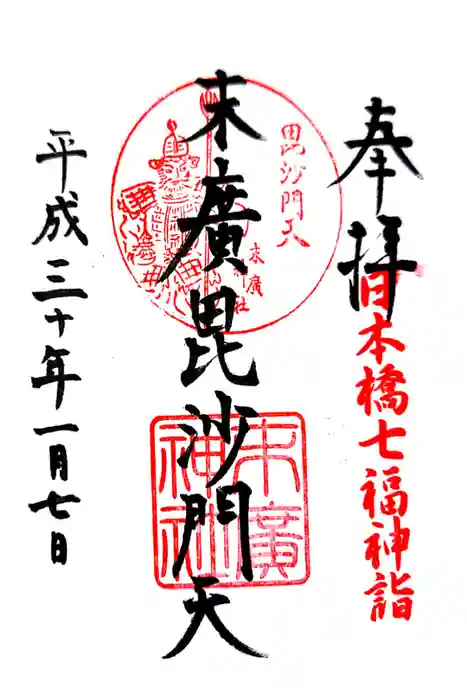 奉拝
日本橋七福神詣
末廣毘沙門天
毘沙門天
末廣
社
末廣
神社
平成三十年一月七日